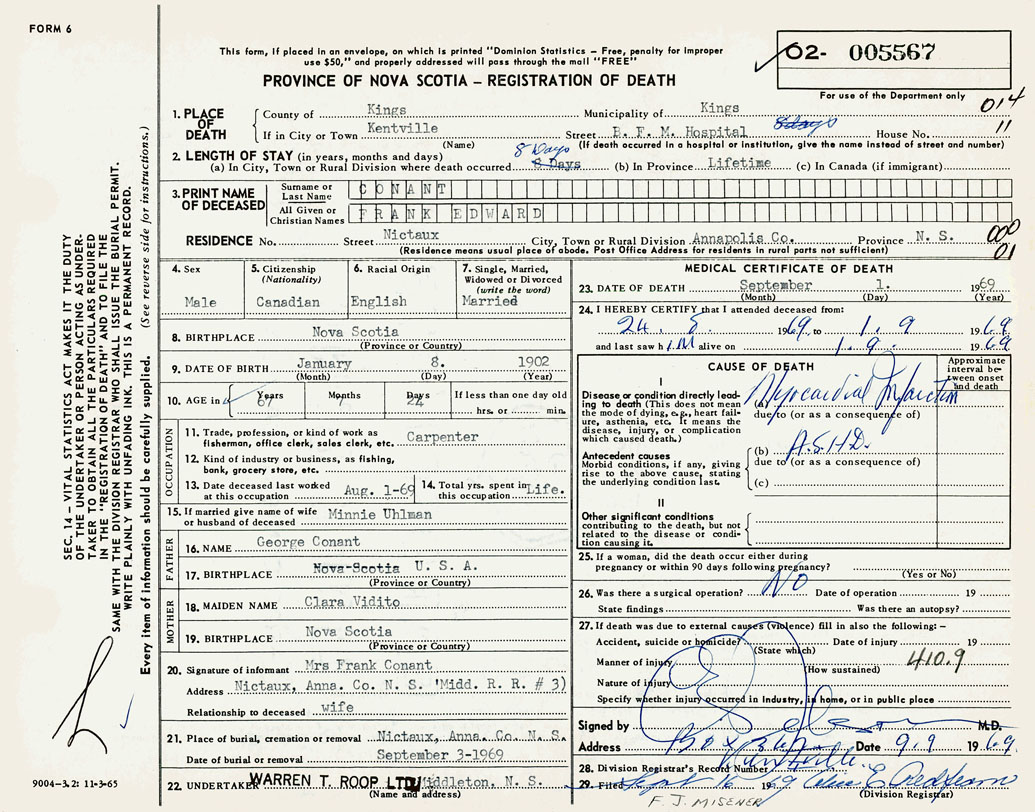 FORM 6
This form, if placed in an envelope, on which is printed "Dominion Statistics — Free, penalty for improper
use $50," and properly addressed will pass through the mail "FREE"
PROVINCE OF NOVA SCOTIA — REGISTRATION OF DEATH
02- 005567
For use of the Department only
014
11
1. PLACE OF DEATH
County of Kings Municipality of Kings
If in City or Town Kentville Street B. F. M. Hospital 8days House No.
(Name) (If death occurred in a hospital or institution, give the name instead of street and number)
2. LENGTH OF STAY (in years, months and days)
8 Days
(a) In City, Town or Rural Division where death occurred 8 Days (b) In Province Lifetime (c) In Canada (if immigrant)
3. PRINT NAME OF DECEASED
Surname or Last Name CONANT
All Given or Christian Names FRANK EDWARD
RESIDENCE No. Street Nictaux City, Town or Rural Division Annapolis Co. Province N. S.
(Residence means usual place of abode. Post Office Address for residents in rural parts not sufficient)
000
01
4. Sex
Male
5. Citizenship (Nationality)
Canadian
6. Racial Origin
English
7. Single, Married, Widowed or Divorced (write the word)
Married
8. BIRTHPLACE Nova Scotia
(Province or Country)
9. DATE OF BIRTH January 8. 1902
(Month) (Day) (Year)
10. AGE in Years Months Days If less than one day old
67 7 24 hrs. or min.
OCCUPATION
11. Trade, profession, or kind of work as
fisherman, office clerk, sales clerk, etc. Carpenter
12. Kind of industry or business, as fishing,
bank, grocery store, etc.
13. Date deceased last worked
at this occupation Aug. 1-69
14. Total yrs. spent in
this occupation Life.
15. If married give name of wife
or husband of deceased Minnie Uhlman
FATHER
16. NAME George Conant
17. BIRTHPLACE Nova Scotia U. S. A.
(Province or Country)
MOTHER
18. MAIDEN NAME Clara Vidito
19. BIRTHPLACE Nova Scotia
(Province or Country)
20. Signature of informant Mrs Frank Conant
Address Nictaux, Anna. Co. N. S. 'Midd. R. R. # 3)
Relationship to deceased wife
21. Place of burial, cremation or removal Nictaux, Anna. Co. N. S.
Date of burial or removal September 3-1969
22. UNDERTAKER WARREN T. ROOP LTD Middleton, N. S.
(Name and address)
MEDICAL CERTIFICATE OF DEATH
23. DATE OF DEATH September 1. 1969
(Month) (Day) (Year)
24. I HEREBY CERTIFY that I attended deceased from:
24. 8. 1969 to 1. 9 1969
and last saw him alive on 1. 9. 1969
CAUSE OF DEATH
Approximate interval between onset and death
I
Disease or condition directly leading to death (This does not mean
the mode of dying, e.g., heart failure, asthenia, etc. It means the
disease, injury, or complication
which caused death.)
(a) Myocardial Infarction
due to (or as a consequence of)
Antecedent causes
Morbid conditions, if any, giving
rise to the above cause, stating
the underlying condition last.
(b) A.S.H.D.
due to (or as a consequence of)
(c)
II
Other significant conditions
contributing to the death, but not
related to the disease or condition causing it.
25. If a woman, did the death occur either during
pregnancy or within 90 days following pregnancy?
(Yes or No)
26. Was there a surgical operation? NO Date of operation 19
State findings Was there an autopsy?
27. If death was due to external causes (violence) fill in also the following: —
Accident, suicide or homicide? Date of injury 19
(State which)
Manner of injury 410.9
(How sustained)
Nature of injury
Specify whether injury occurred in Industry, in home, or in public place
Signed by M.D.
Address Box Kentville Date 9.9 1969.
28. Division Registrar's Record Number
29. Filed Sept 16 19
(Division Registrar)
F. J. MISENER
SEC. 14 — VITAL STATISTICS ACT MAKES IT THE DUTY
OF THE UNDERTAKER OR PERSON ACTING AS UNDER-
TAKER TO OBTAIN ALL THE PARTICULARS REQUIRED
IN THE "REGISTRATION OF DEATH" AND TO FILE THE
SAME WITH THE DIVISION REGISTRAR WHO SHALL ISSUE THE BURIAL PERMIT.
WRITE PLAINLY WITH UNFADING INK. THIS IS A PERMANENT RECORD.
Every item of information should be carefully supplied. (See reverse side for instructions.)
9004-3.2: 11-3-65